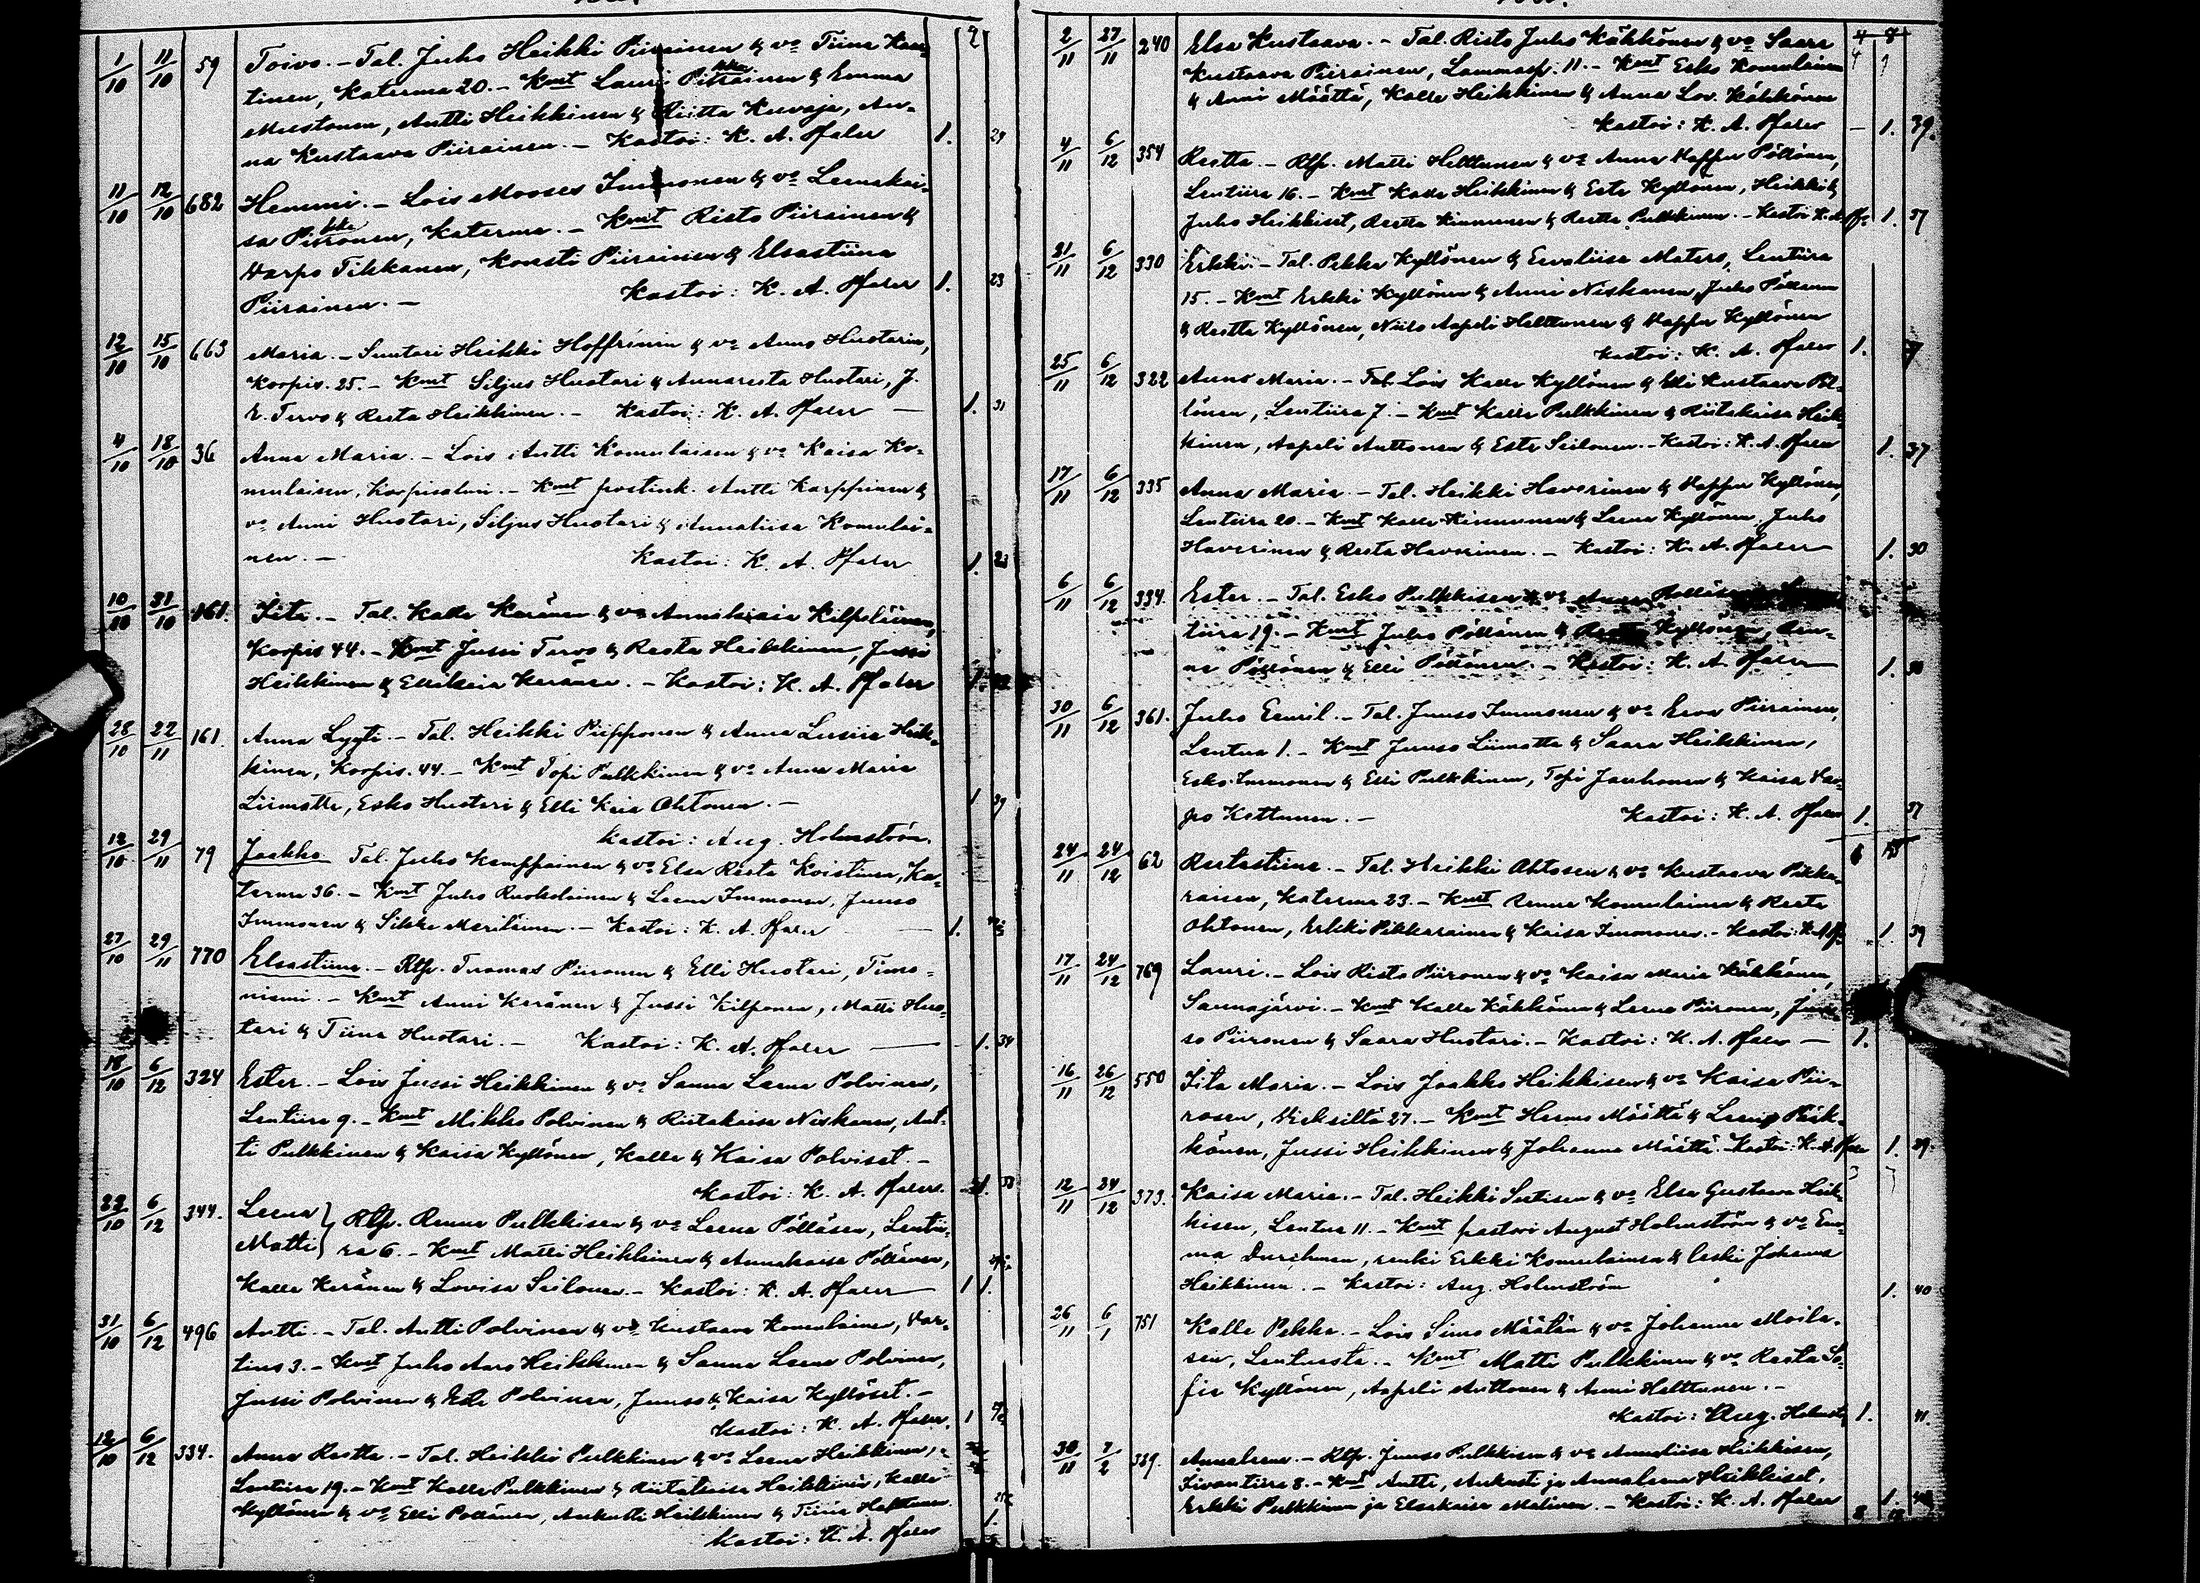 1/10 11/10 59 Toivo. – Tal. Juho Heikki Piirainen & vo Tiina Kaa-
tinen, Katerma 20. – Kmt Lauri Piirainen & Emma
Mustonen, Antti Heikkinen & Riitta Kuvaja, An-
na Kustaava Piirainen. – Kastoi: K. A. Pfaler 1. 29
11/10 12/10 682 Hemmi. – Lois Mooses Immonen & vo Leenakai-
sa Piironen, Katerma. – Kmt Risto Piirainen &
Warpo Tikkanen, Konsti Piirainen & Elsastiina
Piirainen. – Kastoi: K. A. Pfaler 1. 23
12/10 15/10 663 Maria. – Suutari Heikki Hoffrénin & vo Anna Huotarin,
Korpis. 25. – Kmt Siljus Huotari & Annareeta Huotari, J.
E. Tervo & Reeta Heikkinen. – Kastoi: K. A. Pfaler – 1. 31
4/10 18/10 36 Anna Maria. – Lois Antti Komulaisen & vo Kaisa Ko-
mulaisen, Korpisalmi. – Kmt postink. Antti Karppinen &
vo Anni Huotari, Siljus Huotari & Annaliisa Komulai-
nen. – Kastoi: K. A. Pfaler 1. 23
10/10 31/10 161. Iita. – Tal. Kalle Keränen & vo Annakaisa Kilpeläinen,
Korpis 44. – Kmt Jussi Tervo & Reeta Heikkinen, Jussi
Heikkinen & Ellikaia Keränen. – Kastoi: K. A. Pfaler 1.
28/10 22/11 161. Anna Lyyti. – Tal. Heikki Piipponen & Anna Luviisa Heik-
kinen, Korpis. 44. – Kmt Topi Pulkkinen & vo Anna Maria
Liimatta, Esko Huotari & Elli Kaia Ohtonen. – 1 39
Kastoi: Aug. Holmström.
12/10 29/11 79 Jaakko Tal. Juho Kamppainen & vo Elsa Reeta Koistinen, Ka-
terma 36. – Kmt Juho Ruokolainen & Leena Immonen, Juuso
Immonen & Silkka Meriläinen. – Kastoi: K. A. Pfaler 1.
27/10 29/11 770 Elsastiina. – Rlp. Tuomas Piironen & Elli Huotari, Timo-
niemi. – Kmt Anni Keränen & Jussi Kilponen, Matti Huo-
tari & Tiina Huotari. – Kastoi: K. A. Pfaler – 1. 34
18/10 6/12 324 Ester. – Lois Jussi Heikkinen & vo Sanna Leena Polvinen,
Lentiira 9. – Kmt Mikko Polvinen & Riitakaisa Niskanen, Ant-
ti Pulkkinen & Kaisa Kyllönen, Kalle & Kaisa Polviset. –
Kastoi: K. A. Pfaler. 1. 33
22/10 6/12 344. Leena } Rlp. Renne Pulkkisen & vo Leena Pölläsen, Lentii-
Matti } ra 6. – Kmt Matti Heikkinen & Annakaisa Pöllänen,
Kalle Keränen & Lovisa Seilonen. – Kastoi: K. A. Pfaler – 1 1.
31/10 6/12 496 Antti. – Tal. Antti Polvinen & vo Kustaava Komulainen, Var-
tius 3. – Kmt Juho Aaro Heikkinen & Sanna Leena Polvinen,
Jussi Polvinen & Eeli Polvinen, Juuso & Kaisa Kyllöset. –
Kastoi: K. A. Pfaler. 1
12/10 6/12 334. Anna Reetta. – Tal. Heikki Pulkkinen & vo Leena Heikkinen,
Lentiira 19. – Kmt Kalle Pulkkinen & Riitaliisa Heikkinen, Kalle
Kyllönen & vo Elli Pöllänen, Aukusti Heikkinen & Tiina Helttunen.
Kastoi: K. A. Pfaler 1.
2/11 27/11 240 Elsa Kustaava. – Tal. Risto Juho Kähkönen & vo Saara
Kustaava Piirainen, Lammasp. 11. – Kmt Esko Komulainen
& Anni Määttä, Kalle Heikkinen & Anna Lov. Kähkönen
Kastoi: K. A. Pfaler – 1. 39.
4/11 6/12 354 Reetta. – Rlp. Matti Helttunen & vo Anna Kappu Pöllönen,
Lentiira 16. – Kmt Kalle Heikkinen & Eeta Kyllönen, Heikki &
Juho Heikkiset, Reetta Kinnunen & Reetta Pulkkinen. – Kastoi K. A. Pf. 1. 37
21/11 6/12 330 Erkki. – Tal. Pekka Kyllönen & Eevaliisa Matero, Lentiira
15. – Kmt Erkki Kyllönen & Anni Niskanen, Juho Pöllänen
& Reetta Kyllönen, Niilo Aapeli Helttunen & Kappu Kyllönen
Kastoi: K. A. Pfaler 1.
25/11 6/12 322 Anna Maria. – Tal. Lois Kalle Kyllönen & Elli Kustaava Pöl-
lönen, Lentiira 7. – Kmt Kalle Pulkkinen & Riitakaisa Heik-
kinen, Aapeli Anttonen & Eeta Seilonen. – Kastoi: K. A. Pfaler 1. 37
17/11 6/12 335 Anna Maria. – Tal. Heikki Haverinen & Kappu Kyllönen,
Lentiira 20. – Kmt Kalle Kinnunen & Leena Kyllönen, Juho
Haverinen & Reeta Haverinen. – Kastoi: K. A. Pfaler – 1. 30
6/11 6/12 334. Ester. – Tal. Esko Pulkkisen & vo Anna
tiira 19. – Kmt Juho Pöllänen & Reetta Kyllönen, Ren-
ne Pöllönen & Elli Pöllönen. – Kastoi: K. A. Pfaler – 1. 30
30/11 6/12 361. Juho Eemil. – Tal. Juuso Immonen & vo Eeva Piirainen,
Lentua 1. – Kmt Juuso Liimatta & Saara Heikkinen,
Esko Immonen & Elli Pulkkinen, Topi Jauhonen & Kaisa Var-
po Kettunen. – Kastoi: K. A. Pfaler 1. 37
24/11 24/12 62 Reetastiina. – Tal. Heikki Ahtosen & vo Kustaava Pikka-
raisen, Katerma 23. – Kmt Renne Komulainen & Reeta
Ohtonen, Erkki Pikkarainen & Kaisa Immonen. – Kastoi: K. A. Pf. 1. 39
17/11 24/12 769 Lauri. – Lois Risto Piironen & vo Kaisa Maria Kähkönen,
Saunajärvi. – Kmt Kalle Kähkönen & Leena Piironen, Juu-
so Piironen & Saara Huotari. – Kastoi: K. A. Pfaler – 1.
16/11 26/12 550 Iita Maria. – Lois Jaakko Heikkisen & vo Kaisa Pii-
rosen, Wieksiltä 27. – Kmt Hermo Määttä & Leena Pääk-
könen, Jussi Heikkinen & Johanna Määttä. Kastoi: K. A. Pfaler 1. 29.
12/11 24/12 373. Kaisa Maria. – Tal. Heikki Sutisen & vo Elsa Gustaava Heik-
kisen, Lentua 11. – Kmt pastori August Holmström & vo Em-
ma Durchman, renki Erkki Komulainen & leski Johanna
Heikkinen. – Kastoi: Aug. Holmström 1. 40
26/11 6/1 751 Kalle Pekka. – Lois Simo Määtän & vo Johanna Moila-
sen, Lentuasta. – Kmt Matti Pulkkinen & vo Reeta So-
fia Kyllönen, Aapeli Anttonen & Anni Helttunen. –
Kastoi: Aug. Holmst. 1. 41.
30/11 7/2 369. Annaleena. – Rlp. Juuso Pulkkisen & vo Annaliisa Heikkisen,
Iivantiira 8. – Kmt Antti, Aukusti ja Annaleena Heikkiset,
Erkki Pulkkinen ja Elsakaisa Malinen. – Kastoi: K. A. Pfaler 1.